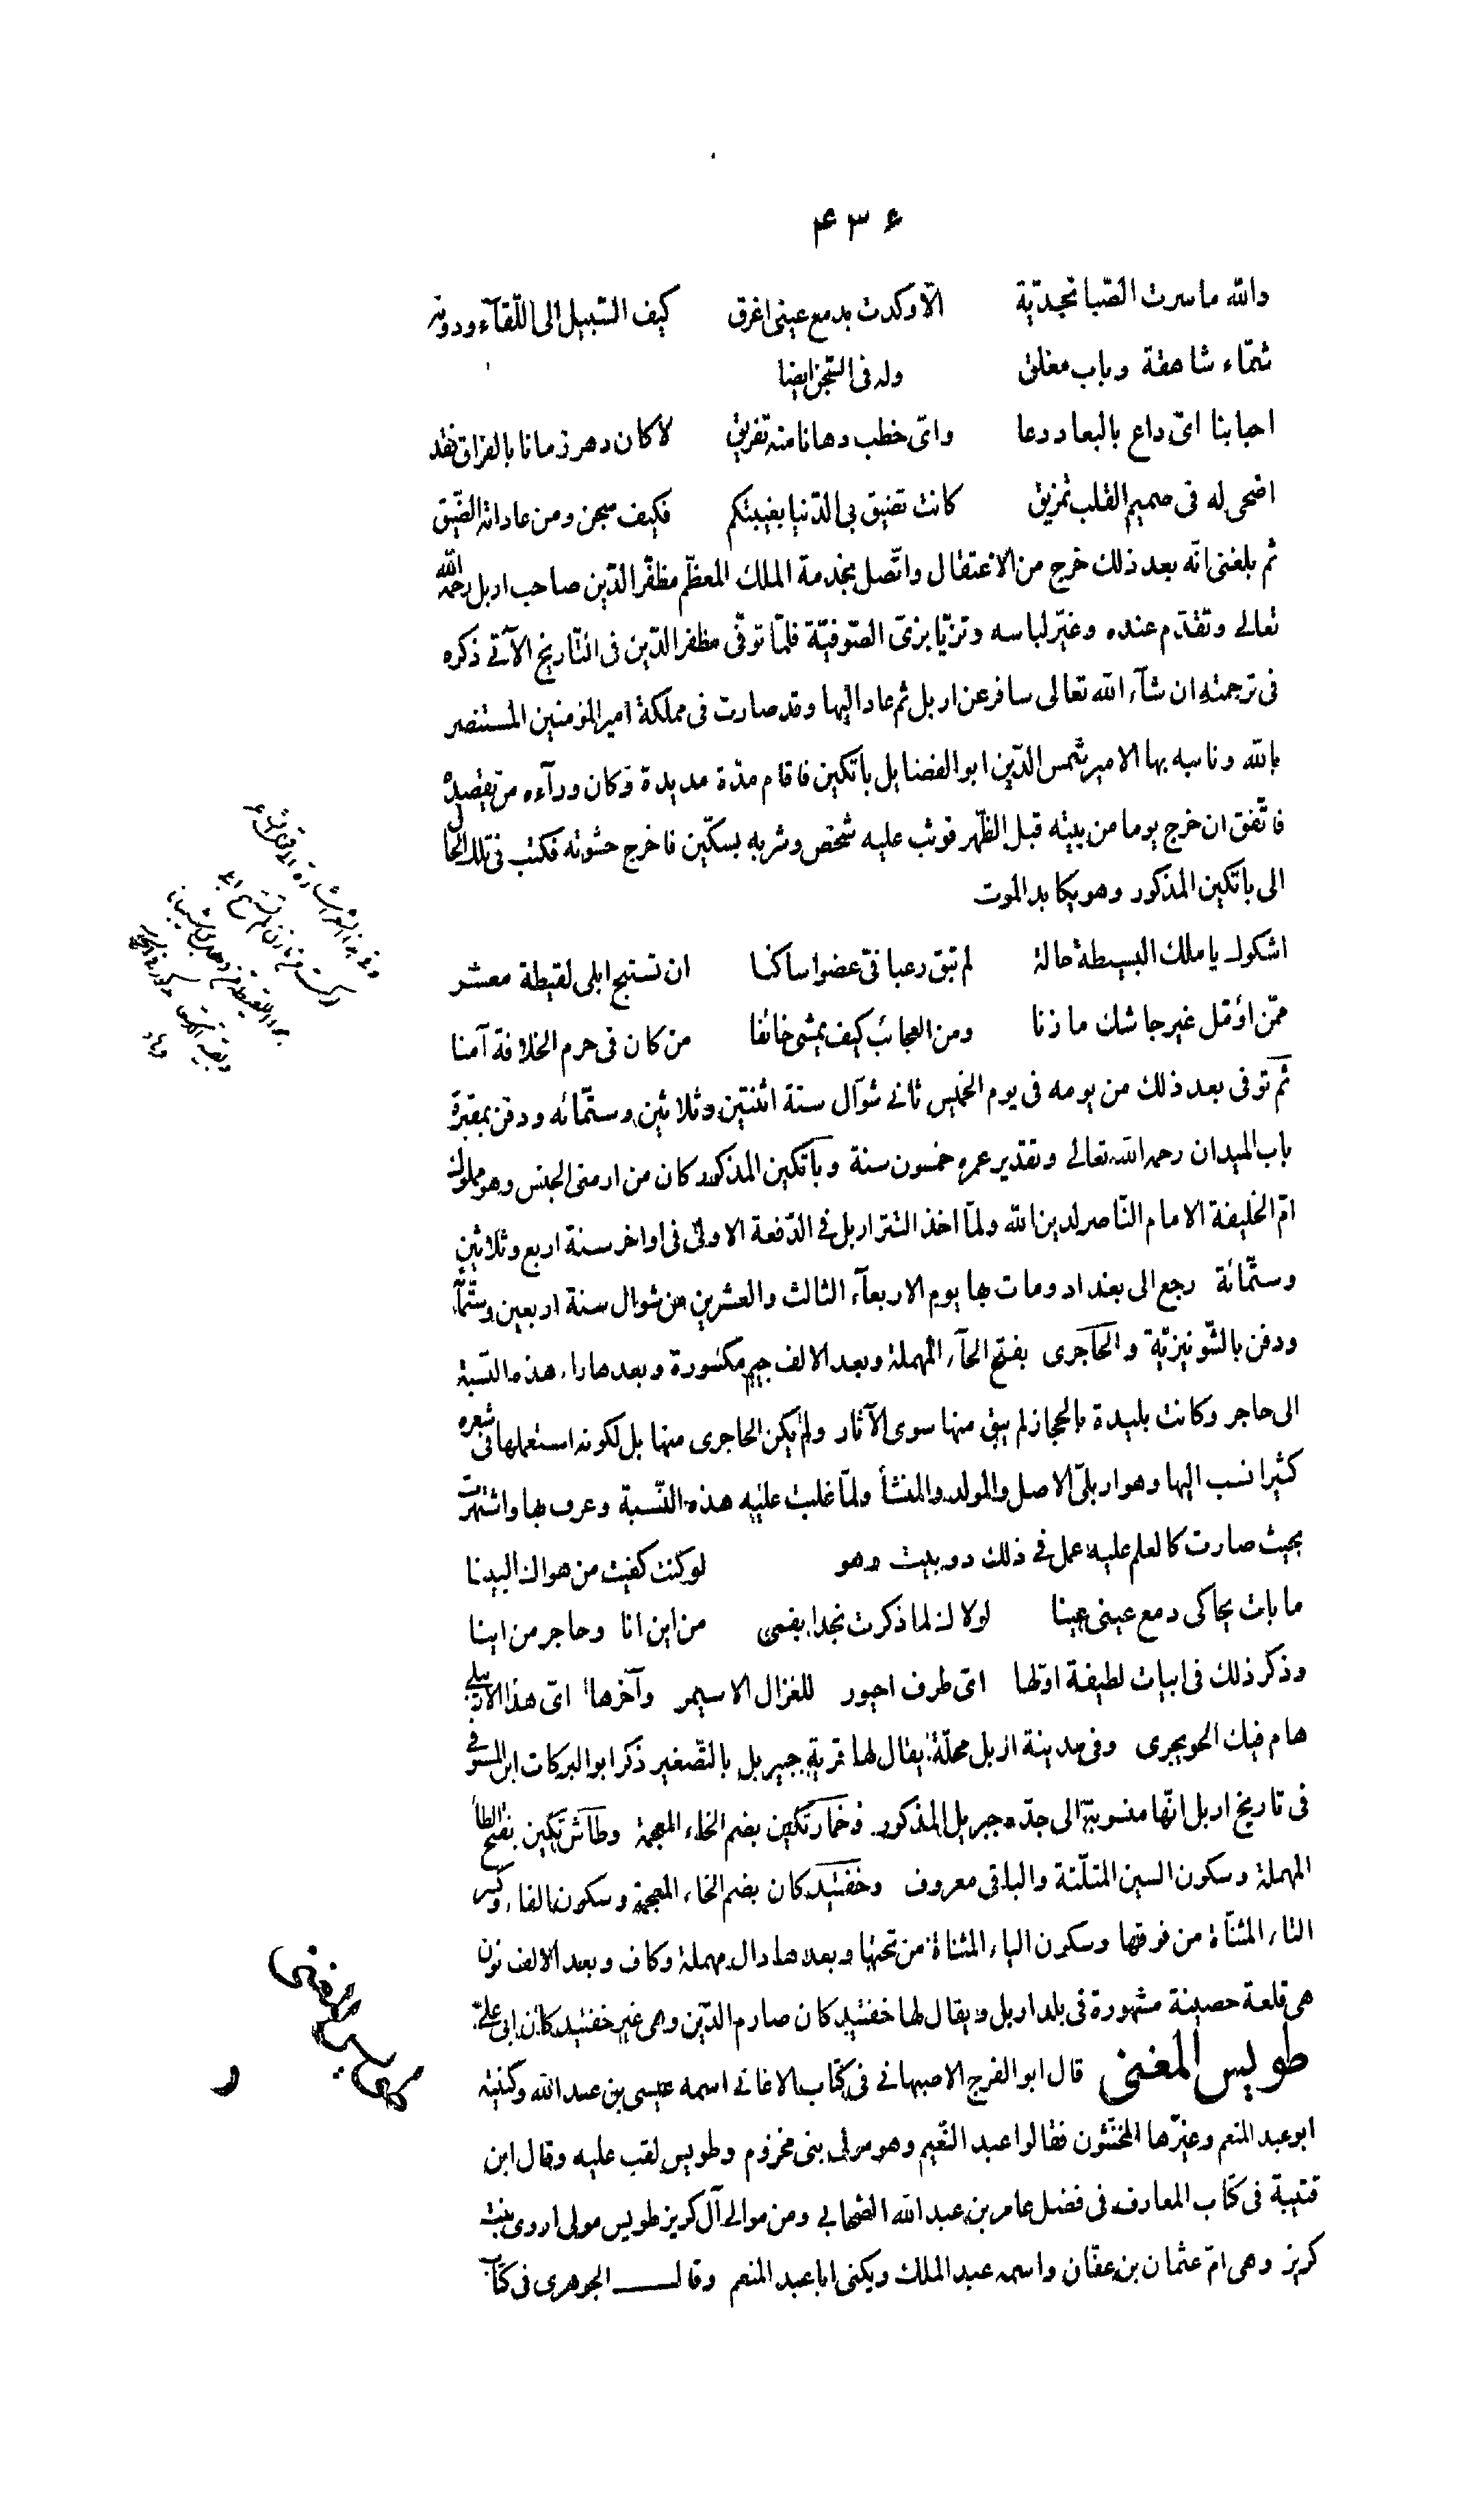 ۴۳۶
والله ما سرت الصّبا نجديّة الّا وكدت بدمع عينى اغرق كيف السّبيل الى اللّقآء ودونه
شمّاء شاهقة وباب مغلق وله فى السّجن ايضا
احبابنا اىّ داع بالبعاد دعا واىّ خطب دهانا منه تفريق لا كان دهر زمانا بالفراق فقد
اضحى له فى صميم القلب تمزيق كانت تضيق بى الدّنيا بغيبتكم فكيف سجن ومن عاداته الضّيق
ثم بلغنى انّه بعد ذلك خرج من الاعتقال واتّصل بخدمة الملك المعظّم مظفّر الدّين صاحب اربل رحمه الله
تعالى وتقدّم عنده وغيّر لباسه وتزيّا بزىّ الصّوفيّة فلمّا توفّى مظفر الدّين فى التّاريخ الآتى ذكره
فى ترجمته ان شآء الله تعالى سافر عن اربل ثم عاد اليها وقد صارت فى مملكة امير المؤمنين المستنصر
بالله ونايبه بها الامير شمس الدّين ابو الفضايل باتكين فاقام مدّة مديدة وكان ورآءه من يقصده
فاتّفق ان خرج يوما من بيته قبل الظّهر فوثب عليه شخص وضربه بسكّين فاخرج حشوته فكتب فى تلك الحال
الى باتكين المذكور وهو يكابد الموت
اشكوك يا ملك البسيطة حالة لم تبق رعبا فىّ عضوا ساكنا ان تستبح ابلى لقيطة معشر
ممّن اؤمّل غير جاشك مازنا ومن العجائب كيف يمشى خائفا من كان فى حرم الخلافة آمنا
ثم توفى بعد ذلك من يومه فى يوم الخميس ثانى شوّال سنة اثنتين وثلاثين وستّمائه ودفن بمقبرة
باب الميدان رحمه الله تعالى وتقدير عمره خمسون سنة وباتكين المذكور كان من ارمنى الجنس وهو مملوك
امّ الخليفة الامام النّاصر لدين الله ولمّا اخذ التتر اربل فى الدّفعة الاولى فى اواخر سنة اربع وثلاثين
وستّمائة رجع الى بغداد ومات بها يوم الاربعآء الثالث والعشرين من شوال سنة اربعين وستّمأة
ودفن بالشّونيزيّة والحاجرى بفتح الحآء المهملة وبعد الالف جيم مكسورة وبعدها راء هذه النّسبة
الى حاجر وكانت بليدة بالحجاز لم يبق منها سوى الآثار ولم يكن الحاجرى منها بل لكونه استعملها فى شعره
كثيرا نسب اليها وهو اربلىّ الاصل والمولد والمنشأ ولمّا غلبت عليه هذه النّسبة وعرف بها واشتهرت
بحيث صارت كالعلم عليه عمل فى ذلك دوبيت وهو لو كنت كفيت من هواك البينا
ما بات يحاكى دمع عينى عينا لولاك لما ذكرت نجدا بفمى من اين انا وحاجر من اينا
وذكر ذلك فى ابيات لطيفة اوّلها اىّ طرف احور للغزال الاسيمر وآخرها اىّ هذا الاربيلى
هام فيك الحويجرى وفى مدينة اربل محلّة يقال لها قرية جبيريل بالتّصغير ذكر ابو البركات ابن المستوفى
فى تاريخ اربل انّها منسوبة الى جدّه جبريل المذكور وخمارتكين بضم الخاء المعجمة وطاش تكين بفتح الطاء
المهملة وسكون السين المثلّثة والباقى معروف وخفتيدكان بضم الخاء المعجمة وسكون الفاء وكسر
التاء المثنّاة من فوقها وسكون الياء المثناة من تحتها وبعدها دال مهملة وكاف وبعد الالف نون
هى قلعة حصينة مشهورة فى بلد اربل ويقال لها خفتيدكان صارم الدّين وهى غير خفتيدكان ابى على
طويس المغنى قال ابو الفرج الاصبهانى فى كتاب الاغانى اسمه عيسى بن عبد الله وكنيته
ابو عبد المنعم وغيّرها المخنّثون فقالوا عبد النّعيم وهو مولى بنى مخزوم وطويس لقب عليه وقال ابن
قتيبة فى كتاب المعارف فى فضل عامر بن عبد الله الصّحابى ومن موالى آل كريز طويس مولى اروى بنت
كريز وهى امّ عثمان بن عفّان واسمه عبد الملك ويكنى ابا عبد المنعم وقال الجوهرى فى كتاب
طويس المغنى